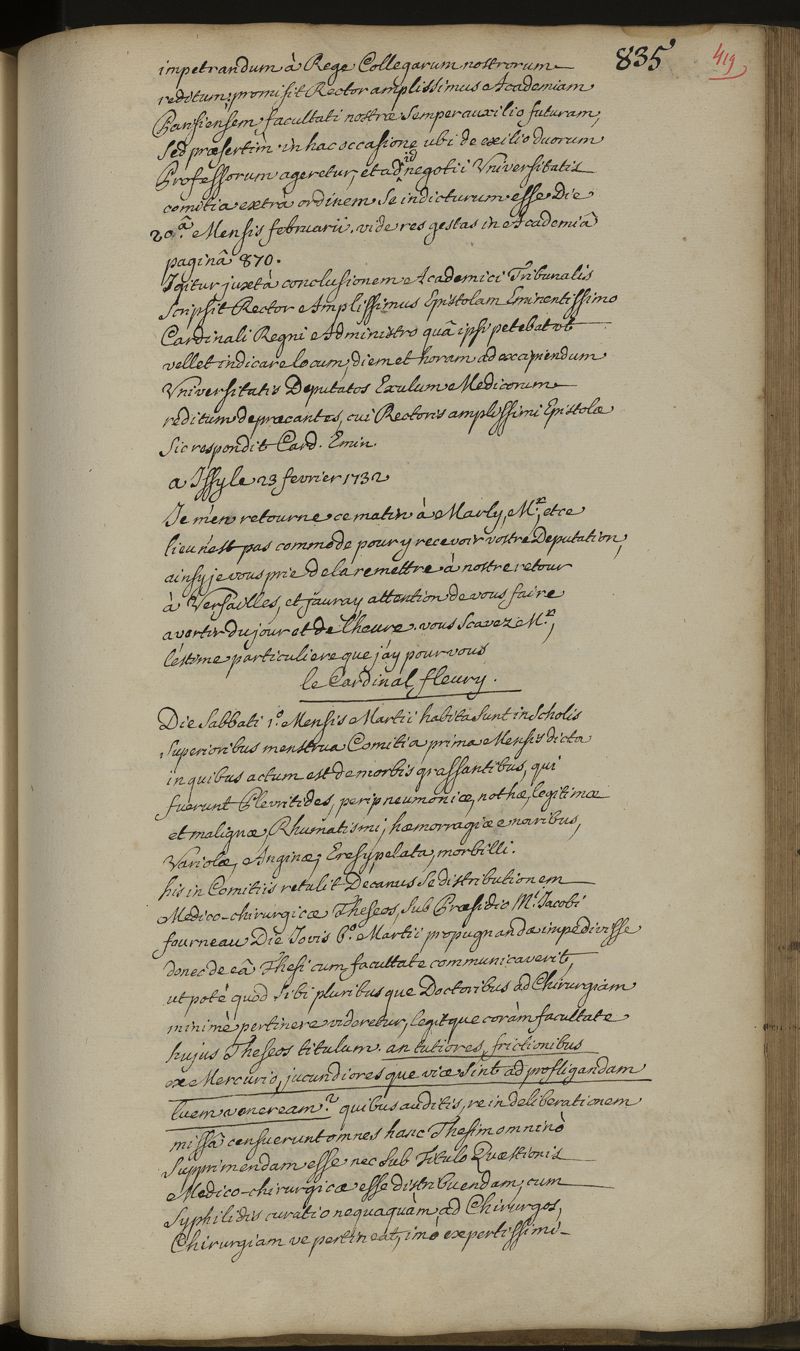 835
419
impetrandum à Rege Collegarum nostrorum
reditum; promisit Rector amplissimus Academiam
Parisiensem facultati nostræ semper auxilio futuram,
Sed præsertim in hac occasione ubi de exilio duorum
Professorum ageretur, et ad id negotii Vniversitatis
comitia extrà ordinem se indicturum esse Die
20.ª Mensis februarii. vide res gestas in Academiâ
paginâ 870.
Igitur juxtà conclusionem Academici Tribunalis
Scripsit Rector Amplissimus Epistolam Eminentissimo
Cardinali Regni Administro quâ ipsi petebat vt
vellet indicare locum, diem et horam ad excipiendum
Vniversitatis Deputatos Exulum Medicorum
reditum deprecantes, cui Rectoris amplissimi Epistolæ
Sic respondit Card. Emin.
a Issy le 23 fevrier 1732
Je m'en retourne ce matin à Marly, M.r, et ce
lieu n'est pas commode pour y recevoir vostre Deputation,
ainsy je vous prie de la remettre à nostre retour
à Versailles, et j'auray attention de vous faire
avertir du jour et de l'heure. vous scavez M.r,
l'estime particuliere que j'ay pour vous
le Cardinal fleury.
Die Sabbati 1.º Mensis Martii habita sunt in Scholis
Superioribus menstrua Comitia prima Mensis dicta
in quibus actum est de morbis grassantibus, qui
fuerunt Plevritides, peripneumoniæ, nothæ, legitimæ
et malignæ, Rhumatismi, hæmorragiæ e naribus,
Variolæ, Anginæ, Eresypelata, morbilli.
his in Comitiis retulit Decanus se distributionem
Medico-chirurgicæ Theseos, sub Præsidio M.i Jacobi
fourneau Die Jovis 6.º Martii propugnandæ impedivisse
donec de eâ Thesi cum facultate communicaverit,
ut potè quod sibi pluribusque Doctoribus ad Chirurgiam
minimè pertinere videretur, legitque coràm facultate
hujus Theseos titulum. an tutiores, frictionibus
ex Mercurio, jucundioresque viæ sint ad profligandam
luem veneream? quibus auditis, re in deliberationem
missâ censuerunt omnes hanc Thesim omninò
Supprimendam esse nec sub Titulo Quæstionis
Medico-chirurgicæ esse distribuendam, cum
Syphilidis curatio nequaquàm ad Chirurgos,
Chirurgiam ve pertineat, imò expertissimi-